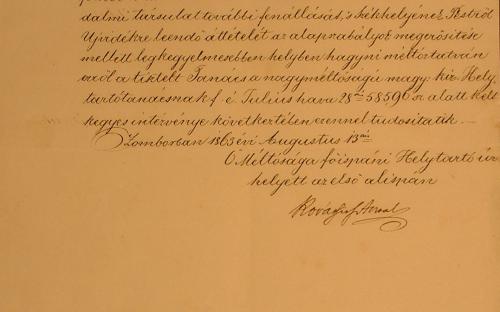 dalmi társulat további fenállását, 's Székhelyének Pestről
Ujvidékre leendő áttételét az alapszabályok megerősitése
mellett legkegyelmesebben helyben hagyni méltóztatván
erről a tisztelt Tanács a nagyméltóságú magy. kir. Hely
tartótanácsnak f. é. Julius hava 28án 58596 sz. alatt kelt
kegyes intézvénye következtében ezennel tudósitatik.
Zomborban 1863 évi Augustus 13án
Ő Méltósága főispáni Helytartó úr
helyett az első alispán